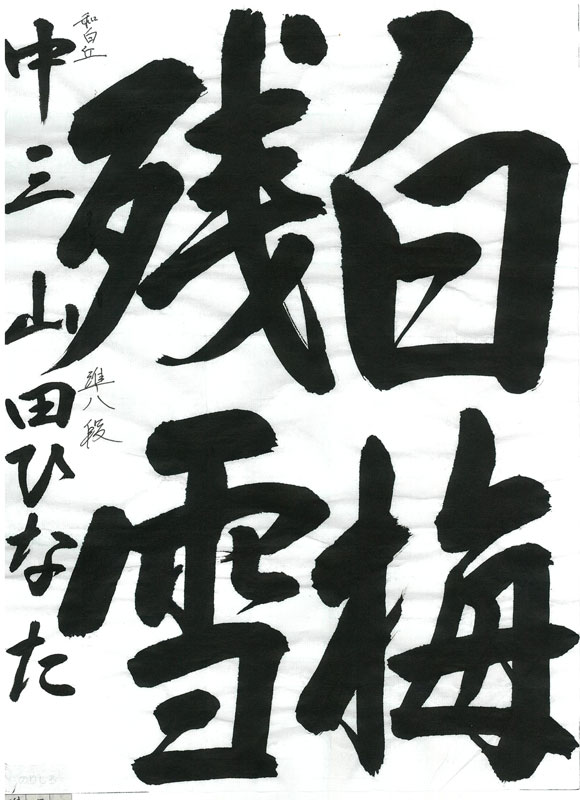 白梅
残雪
和白丘
準八段
中三 山田ひなた